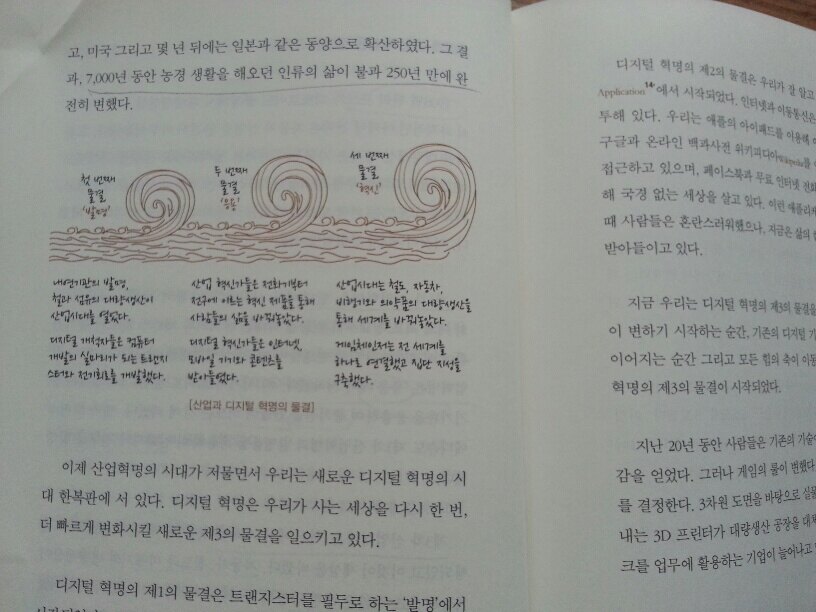 고, 미국 그리고 몇 년 뒤에는 일본과 같은 동양으로 확산하였다. 그 결
과, 7,000년 동안 농경 생활을 해오던 인류의 삶이 불과 250년 만에 완
전히 변했다.
첫 번째
물결
'발명'
두 번째
물결
'응용'
세 번째
물결
'혁신'
내연기관의 발명,
철과 섬유의 대량생산이
산업시대를 열었다.
디지털 개척자들은 컴퓨터
개발의 실마리가 되는 트랜지
스터와 전기회로를 개발했다.
산업 혁신가들은 전화기부터
전구에 이르는 혁신 제품을 통해
사람들의 삶을 바꿔놓았다.
디지털 혁신가들은 인터넷,
모바일 기기와 콘텐츠를
받아들였다.
산업시대는 철도, 자동차,
비행기와 의약품의 대량생산을
통해 세계를 바꿔놓았다.
게임체인저는 전 세계를
하나로 연결했고 집단 지성을
구축했다.
[산업과 디지털 혁명의 물결]
이제 산업혁명의 시대가 저물면서 우리는 새로운 디지털 혁명의 시
대 한복판에 서 있다. 디지털 혁명은 우리가 사는 세상을 다시 한 번,
더 빠르게 변화시킬 새로운 제3의 물결을 일으키고 있다.
디지털 혁명의 제1의 물결은 트랜지스터를 필두로 하는 '발명'에서
디지털 혁명의 제2의 물결은 우리가 잘 알고
Application14에서 시작되었다. 인터넷과 이동통신은
투해 있다. 우리는 애플의 아이패드를 이용해
구글과 온라인 백과사전 위키피디아wikipedia를
접근하고 있으며, 페이스북과 무료 인터넷 전화
해 국경 없는 세상을 살고 있다. 이런 애플리케
때 사람들은 혼란스러워했으나, 지금은 삶의
받아들이고 있다.
지금 우리는 디지털 혁명의 제3의 물결을
이 변하기 시작하는 순간, 기존의 디지털 기
이어지는 순간 그리고 모든 힘의 축이 이동
혁명의 제3의 물결이 시작되었다.
지난 20년 동안 사람들은 기존의 기술이
감을 얻었다. 그러나 게임의 룰이 변했다
를 결정한다. 3차원 도면을 바탕으로 실물
내는 3D 프린터가 대량생산 공장을 대체
크를 업무에 활용하는 기업이 늘어나고